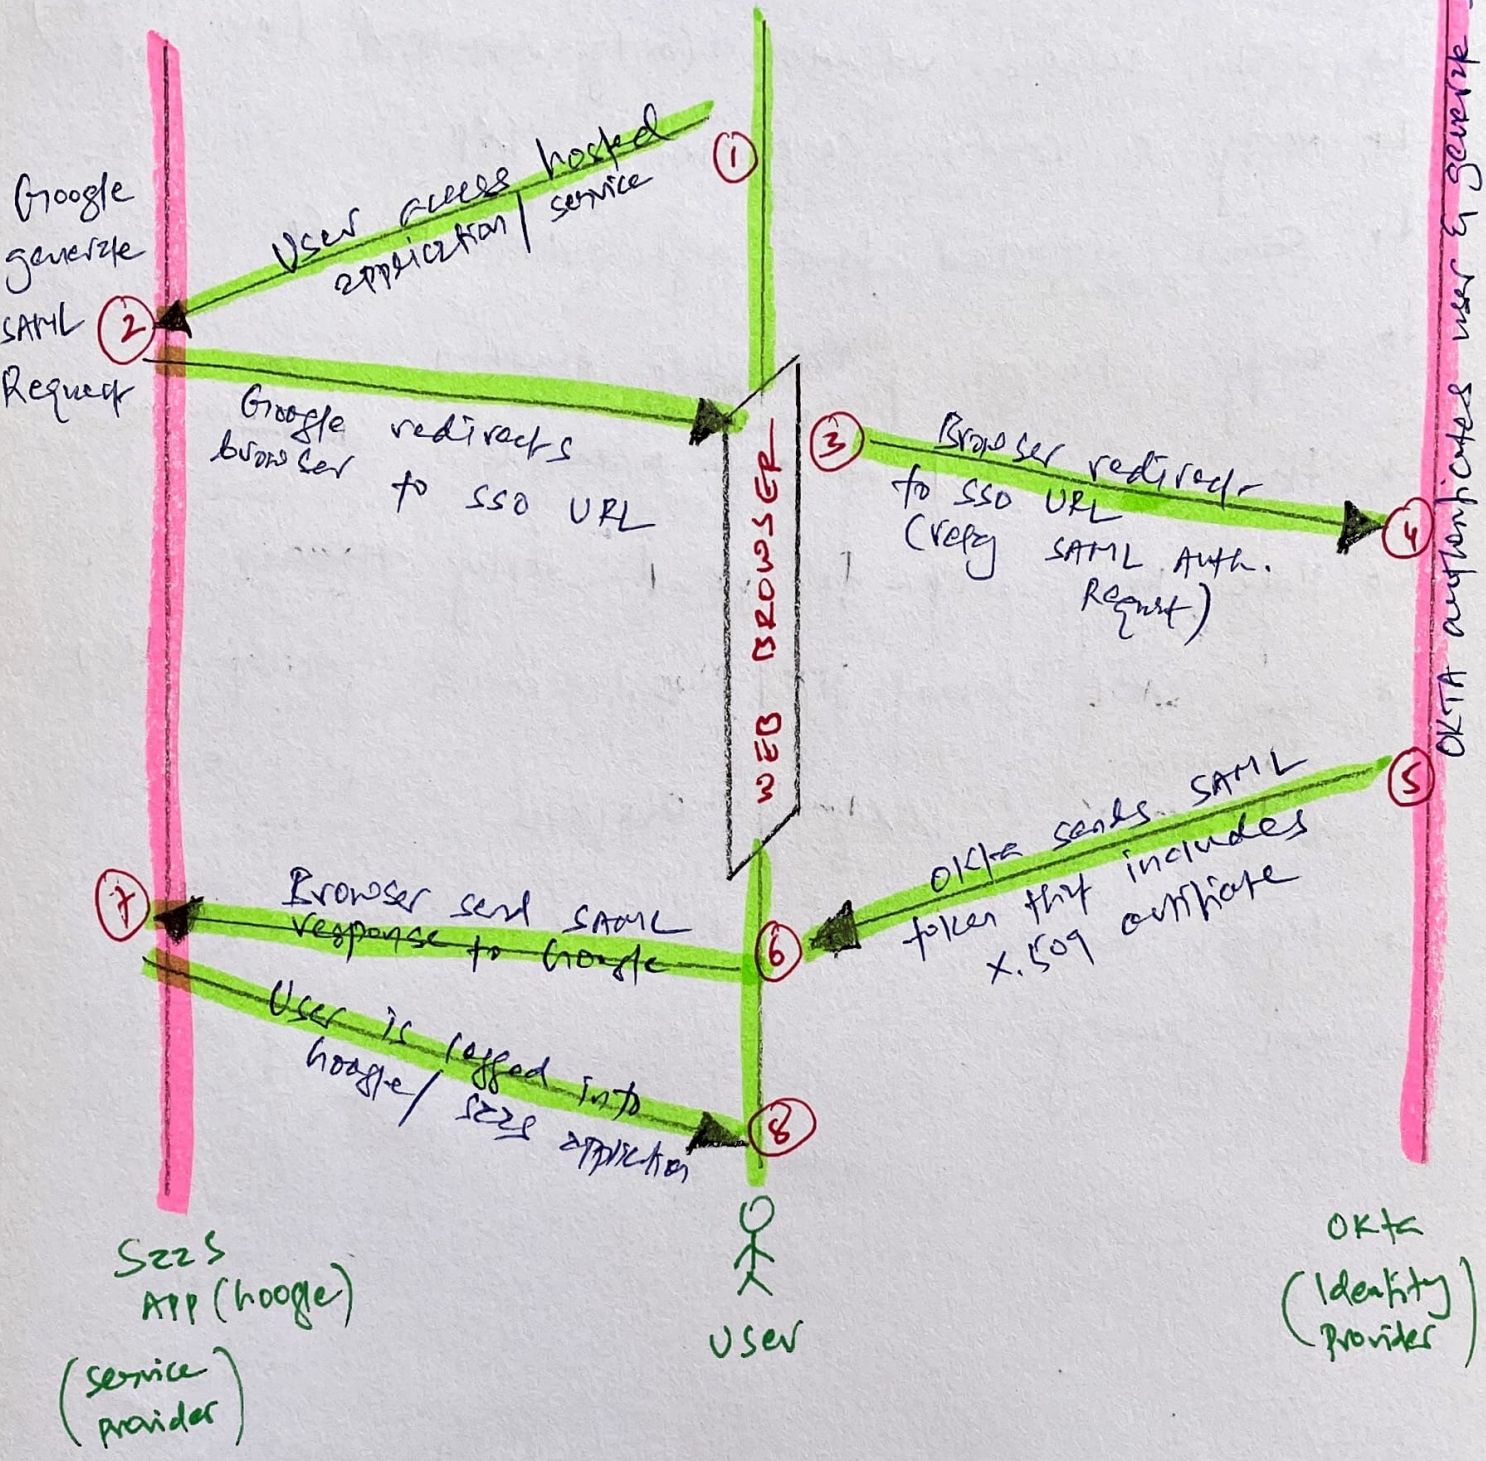 1
User access hosted
application/service
Google
generate
SAML
Request
2
Google redirects
browser
to SSO URL
WEB BROWSER
3
Browser redirect
to SSO URL
SAML Auth.
Request)
4
OKTA authenticates user & generate
5
Okta sends SAML
token that includes
X.509 certificate
6
Browser send SAML
response to Google
7
User is logged into
Google/ SaaS application
8
SaaS
APP (Google)
(service
provider)
User
Okta
(Identity
Provider)